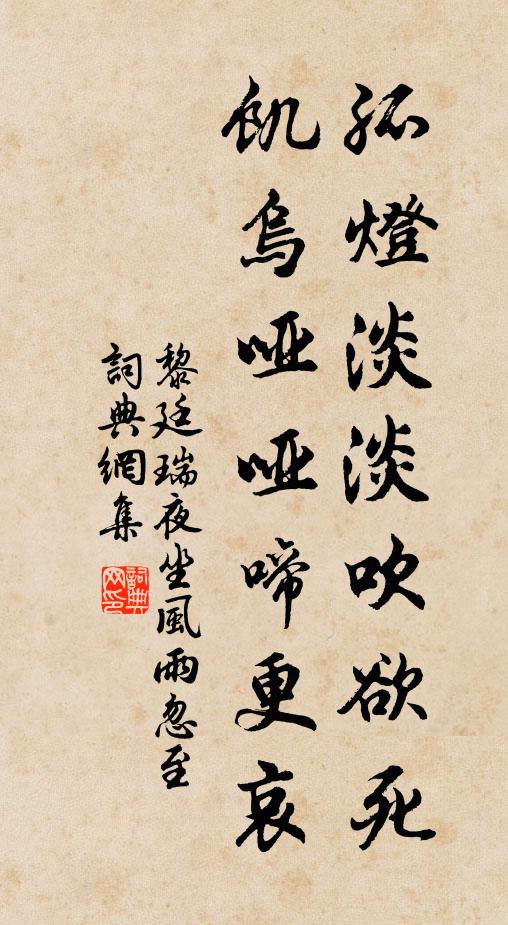 孤燈淡淡吹欲死
飢烏啞啞啼更哀
黎廷瑞夜坐風雨忽至
詞典網集
詞典网印